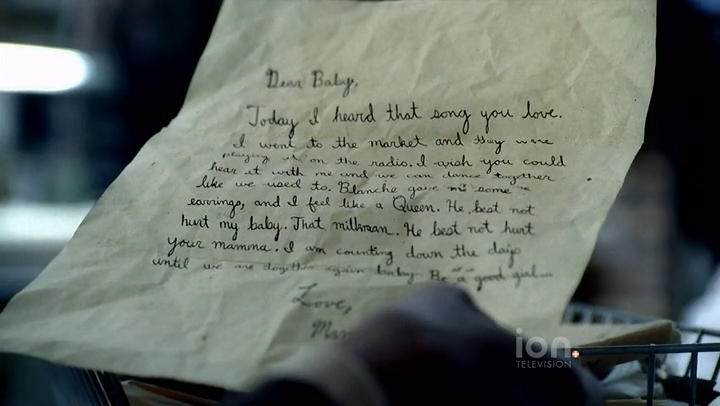 Dear Baby,
Today I heard that song you love.
I went to the market and they were
playing it on the radio. I wish you could
hear it with me and we can dance together
like we used to. Blanche gave me some
earrings, and I feel like a Queen. He best not
hurt my baby. That milkman. He best not hurt
your mamma. I am counting down the days
until we are together again baby. Be a good girl...
Love,
ion
TELEVISION